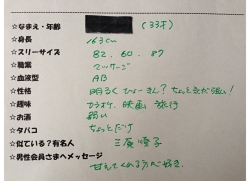 ☆なまえ・年齢 (33才)
☆身長 163cm
☆スリーサイズ 82. 60. 87
☆職業 マッサージ
☆血液型 AB
☆性格 明るく ひょーきん? ちょっと気が強い!
☆趣味 ひるね、映画 旅行
☆お酒 弱い
☆タバコ ちょっとだけ
☆似ている?有名人 三原順子
☆男性会員さまへメッセージ
甘えてくれる方が好き.